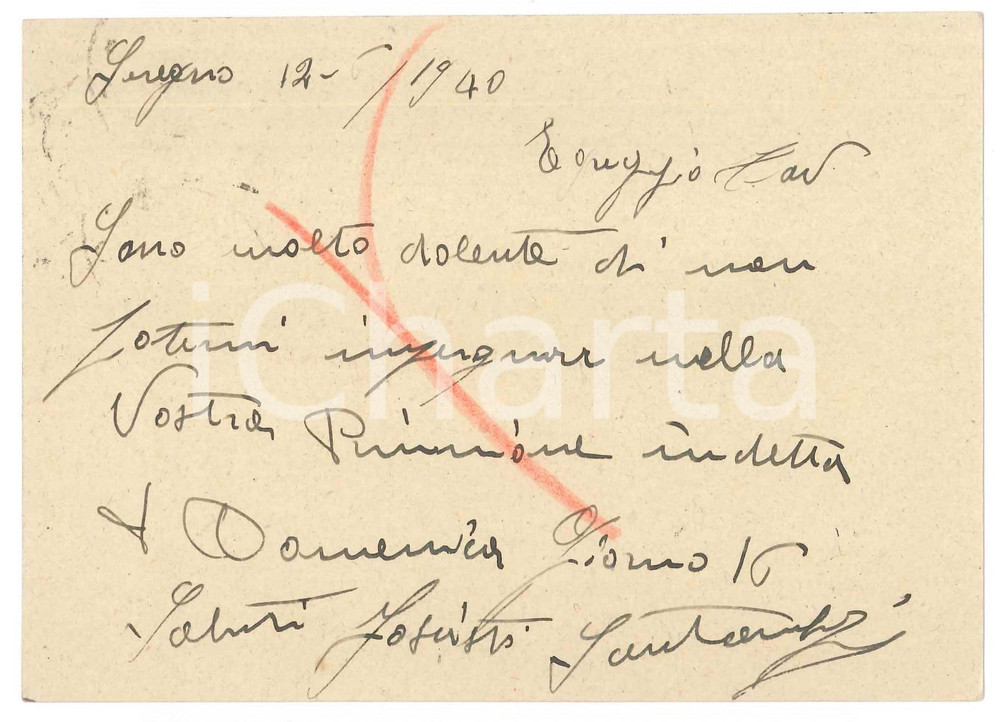 Seregno 12-6/1940
Egreggio Cav
Sono molto dolente di non
potermi impegnare nella
Vostra Riunione indetta
Domenica Giorno 16
Saluti Fascisti
iCharta